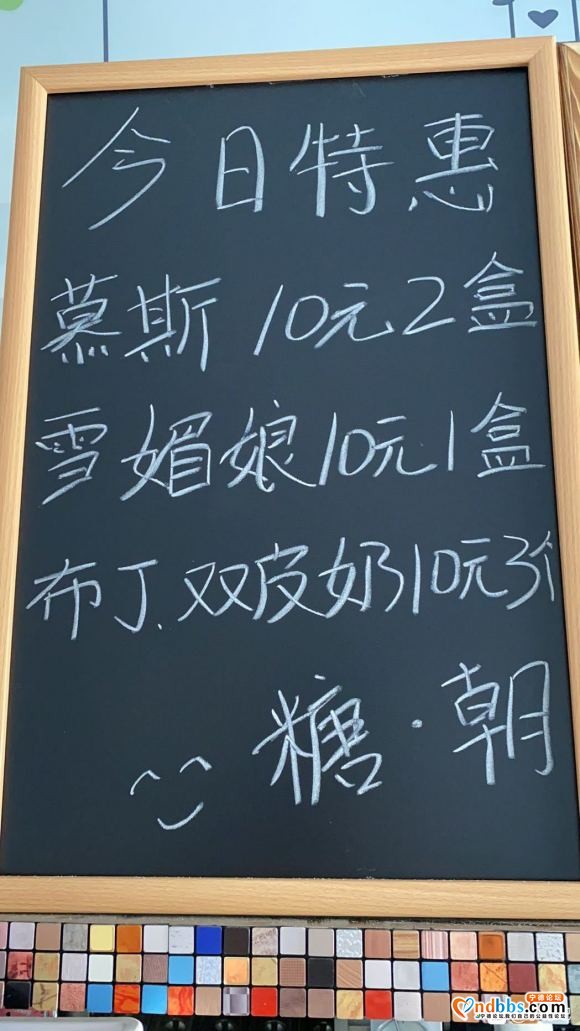 今日特惠
慕斯 10元2盒
雪媚娘10元1盒
布丁.双皮奶10元3个
糖·朝
宁德论坛
ndbbs.com